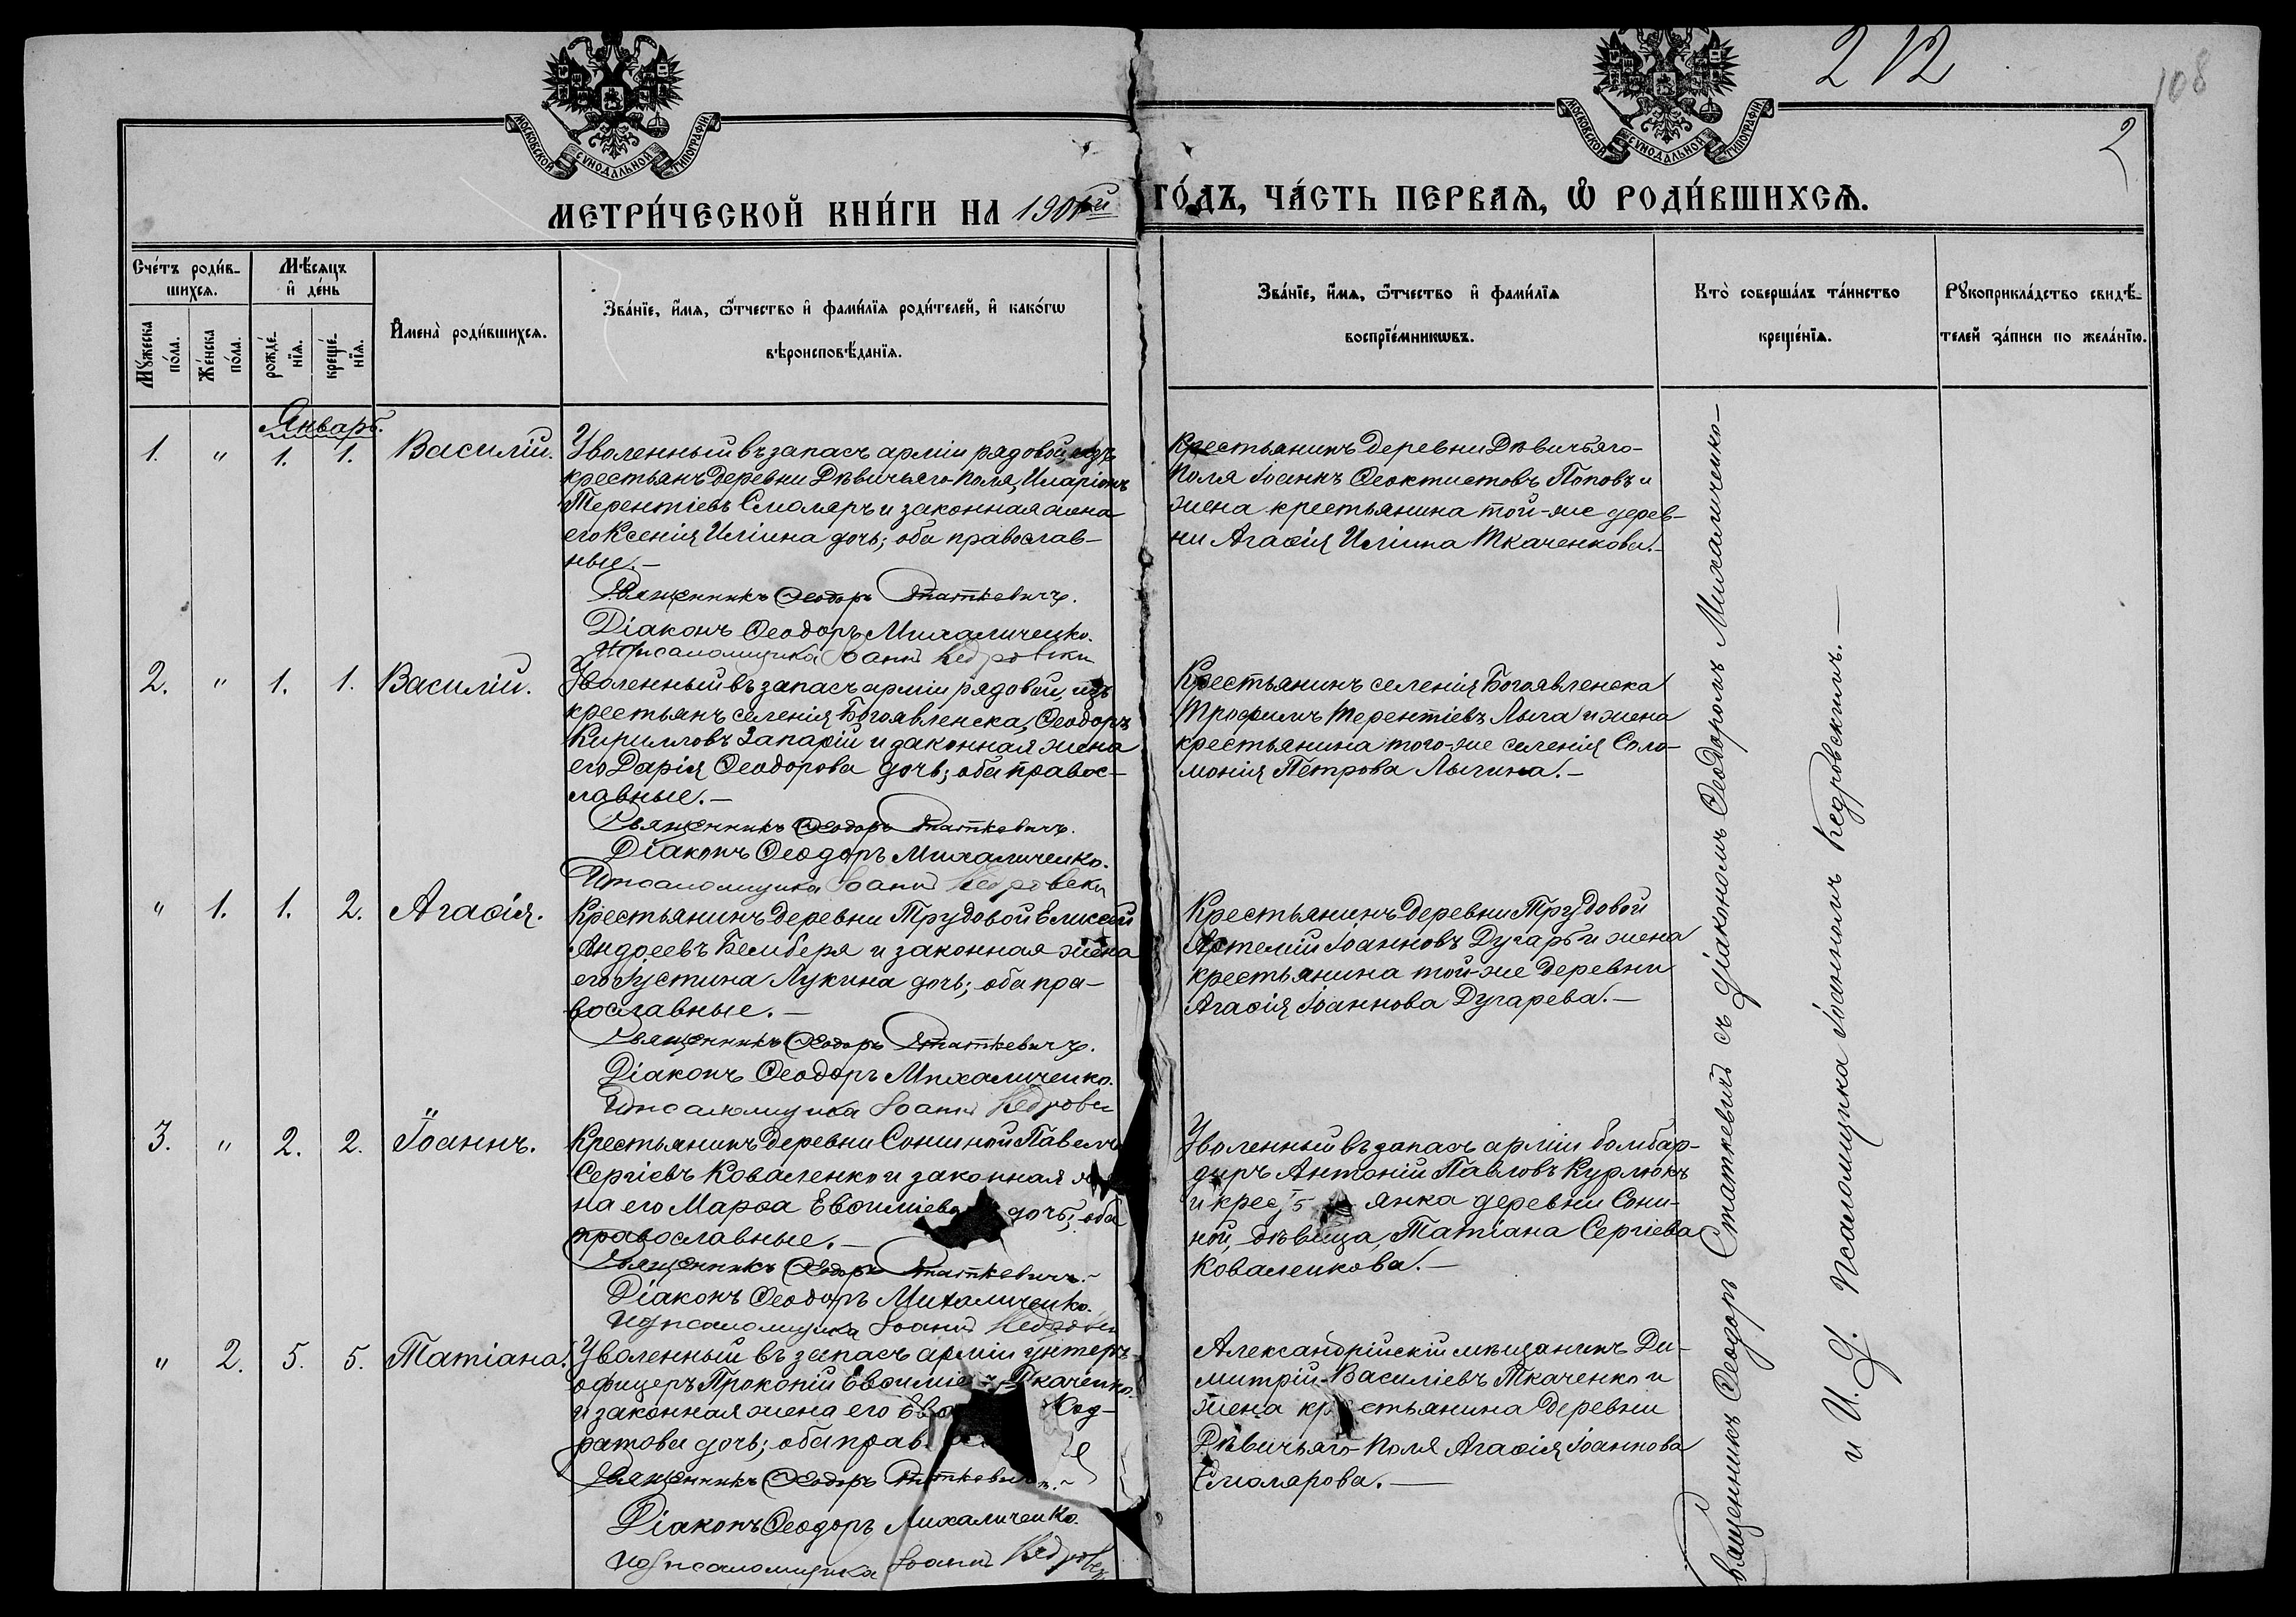 212
108
2
МОСКОВСКОЙ СѴНОДАЛЬНОЙ ТИПОГРАФІИ
МОСКОВСКОЙ СѴНОДАЛЬНОЙ ТИПОГРАФІИ
МЕТРИ́ЧЕСКОЙ КНИ́ГИ НА 1901ый ГО́ДЪ, ЧА́СТЬ ПЕРВАѦ, Ѿ РОДИ́ВШИХСѦ.
Сче́тъ роди́в-
шихсѧ.
Мѣ́сѧцъ
и҆ де́нь
Мꙋ́жеска
по́ла.
Же́нска
по́ла.
рожде́-
нїѧ.
креще́-
нїѧ.
И҆мена̀ роди́вшихсѧ.
Зва́нїе, и҆́мѧ, ѻ҆́тчество и҆ фами́лїѧ роди́телей, и҆ како́гѡ
вѣроисповѣ́данїѧ.
Зва́нїе, и҆́мѧ, ѻ҆́тчество и҆ фами́лїѧ
воспрїе́мникѡвъ.
Кто̀ соверша́лъ та́инство
креще́нїѧ.
Рꙋкоприкла́дство свидѣ́-
телей за́писи по жела́нїю.
Январь.
1. " 1. 1. Василій.
Уволенный въ запасъ арміи рядовой, изъ
крестьянъ деревни Дѣвичьяго-Поля, Иларіонъ
Терентіевъ Смоляръ и законная жена
его Ксенія Иліина дочь; оба православ-
ные.-
Священникъ Ѳеодоръ Статкевичъ.
Діаконъ Ѳеодоръ Михаличенко.
И д псаломщика Іоаннъ Кедровски
Крестьянинъ деревни Дѣвичьяго-
Поля Іоаннъ Ѳеоктистовъ Поповъ и
жена крестьянина той-же дерев-
ни Агаѳія Иліина Ткаченкова.-
2. " 1. 1. Василій.
Уволенный въ запасъ арміи рядовой, изъ
крестьянъ селенія Богоявленска, Ѳеодоръ
Кирилловъ Запарій и законная жена
его Дарія Ѳеодорова дочь; оба правос-
лавные.-
Священникъ Ѳеодоръ Статкевичъ.
Діаконъ Ѳеодоръ Михаличенко.
И д псаломщика Іоаннъ Кедровски
Крестьянинъ селенія Богоявленска
Трофимъ Терентіевъ Лыга и жена
крестьянина того-же селенія Соло-
монія Петрова Лыгина.-
" 1. 1. 2. Агаѳія.
Крестьянинъ деревни Трудовой Елисей
Андреевъ Бемберя и законная жена
его Іустина Лукина дочь; оба пра-
вославные.-
Священникъ Ѳеодоръ Статкевичъ.
Діаконъ Ѳеодоръ Михаличенко.
И д псаломщика Іоаннъ Кедровски
Крестьянинъ деревни Трудовой
Артемій Іоанновъ Дугарь и жена
крестьянина той-же деревни
Агаѳія Іоаннова Дугарева.-
3. " 2. 2. Іоаннъ.
Крестьянинъ деревни Сониной Павелъ
Сергіевъ Коваленко и законная
на его Марѳа Евѳиміева дочь; оба
православные.-
Священникъ Ѳеодоръ Статкевичъ.-
Діаконъ Ѳеодоръ Михаличенко.
И д псаломщика Іоаннъ Кедровски
Уволенный въ запасъ арміи бомбар-
диръ Антоній Павловъ Курлюкъ
и крестьянка деревни Сони-
ной, дѣвица, Татіана Сергіева
Коваленкова.-
" 2. 5. 5. Татіана.
Уволенный въ запасъ арміи унтеръ-
офицеръ Прокопій Евѳиміевъ Ткаченко
и законная жена его Код-
ратова дочь; оба прав
Священникъ Ѳеодоръ Статкевичъ.-
Діаконъ Ѳеодоръ Михаличенко.
И д псаломщика Іоаннъ Кедровск
Александрійскій мѣщанинъ Ди-
митрій Василіевъ Ткаченко и
жена крестьянина деревни
Дѣвичьяго-Поля Агаѳія Іоаннова
Смолярова.-
Священникъ Ѳеодоръ Статкевичъ съ діакономъ Ѳеодоромъ Михаличенко-
и И. Д. Псаломщика Іоанномъ Кедровскимъ.-